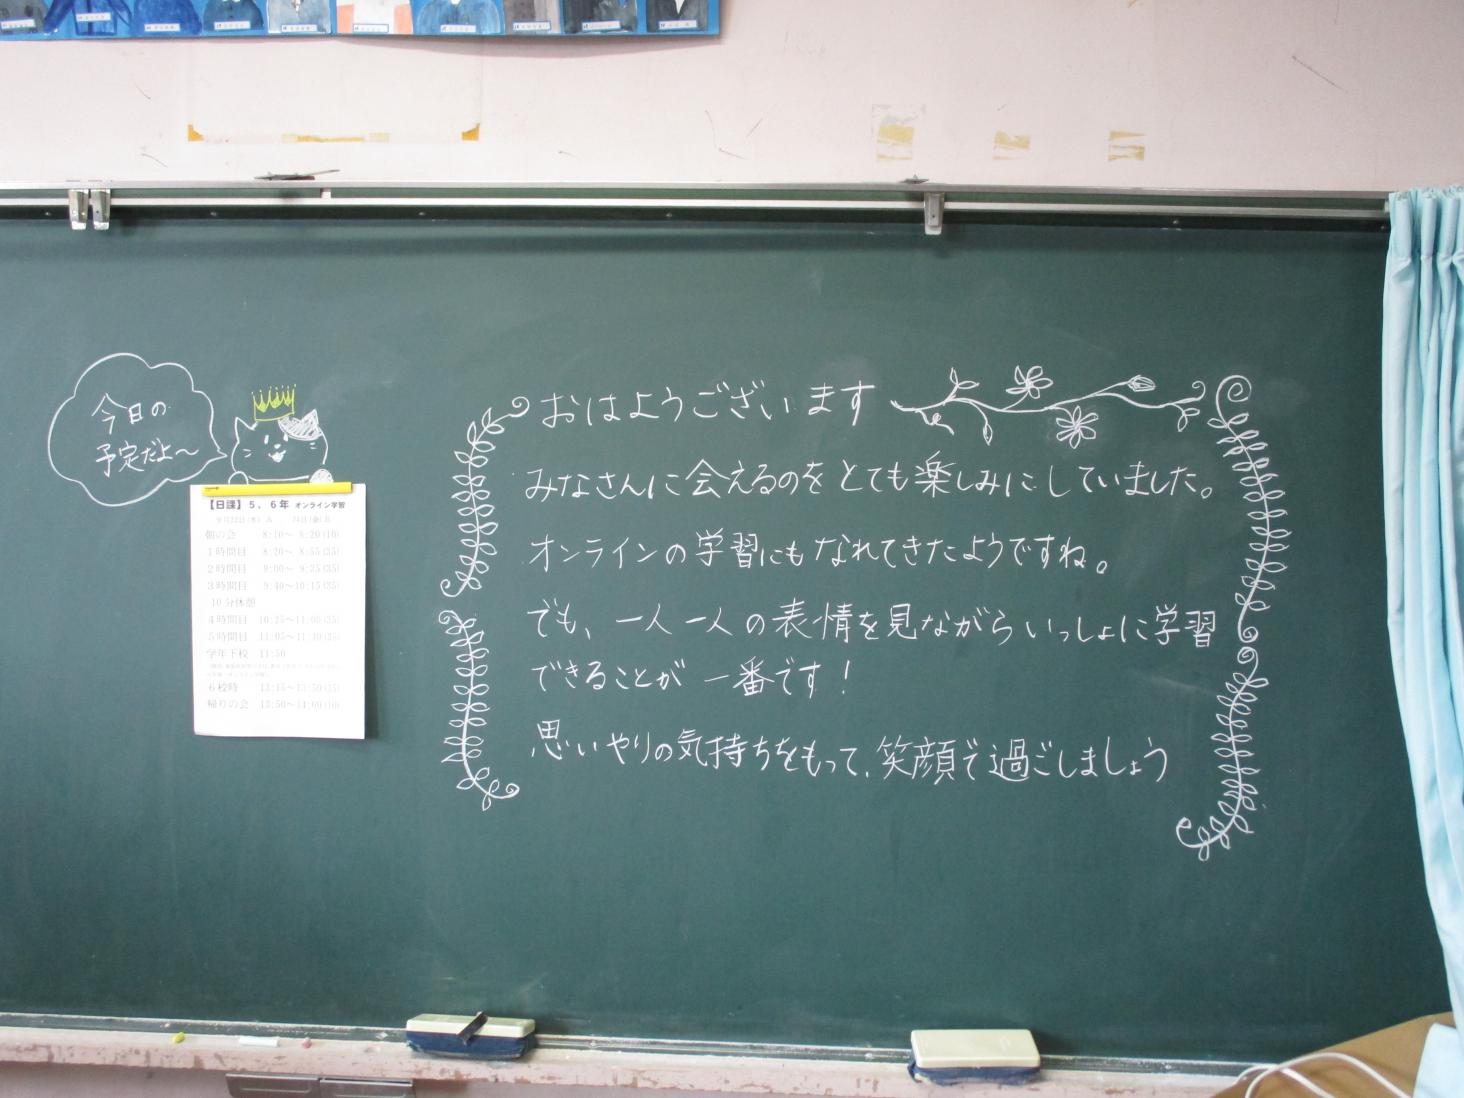 今日の
予定だよ～
【日課】５、６年 オンライン学習
朝の会 8:10～ 8:20(10)
１時間目 8:20～ 8:55(35)
２時間目 9:00～ 9:35(35)
３時間目 9:40～10:15(35)
10分休憩
４時間目 10:25～11:00(35)
５時間目 11:05～11:40(35)
学年下校 11:50
６校時 13:15～13:50(35)
帰りの会 13:50～14:00(10)
おはようございます
みなさんに会えるのをとても楽しみにしていました。
オンラインの学習にもなれてきたようですね。
でも、一人一人の表情を見ながらいっしょに学習
できることが一番です！
思いやりの気持ちをもって、笑顔で過ごしましょう